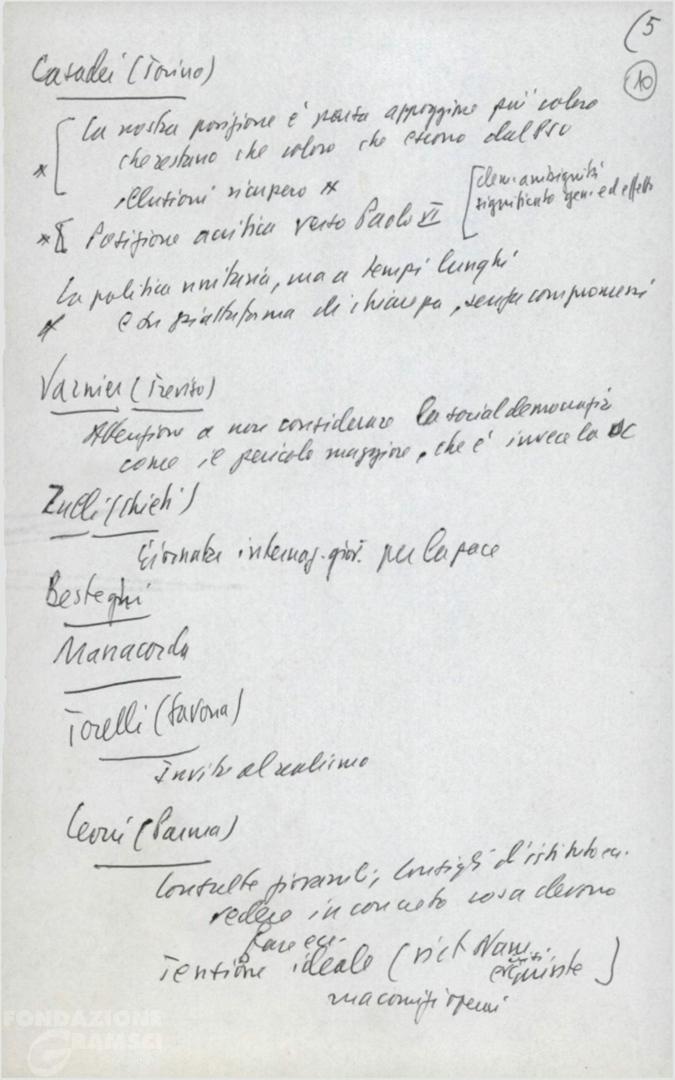 (5
10
Casadei (Torino)
La nostra posizione è senza appoggiare più coloro
che restano che coloro che escono dal PSU
illusioni recupero x
x Posizione acritica verso Paolo VI
elem. ambiguità
significato gen. ed effetti
La politica unitaria, ma a tempi lunghi
e su piattaforma di chiarezza, senza compromessi
Varnier (Treviso)
Attenzione a non considerare la socialdemocrazia
come il pericolo maggiore, che è invece la DC
Zulli (Chieti)
Giornata internaz. giov. per la pace
Besteghi
Manacorda
Torelli (Savona)
Invito al realismo
Leoni (Parma)
Consulte giovanili, Consigli d'istituto ecc.
vedere in concreto cosa devono
fare ecc.
Tensione ideale (Viet Nam
ma con gli operai
FONDAZIONE
GRAMSCI